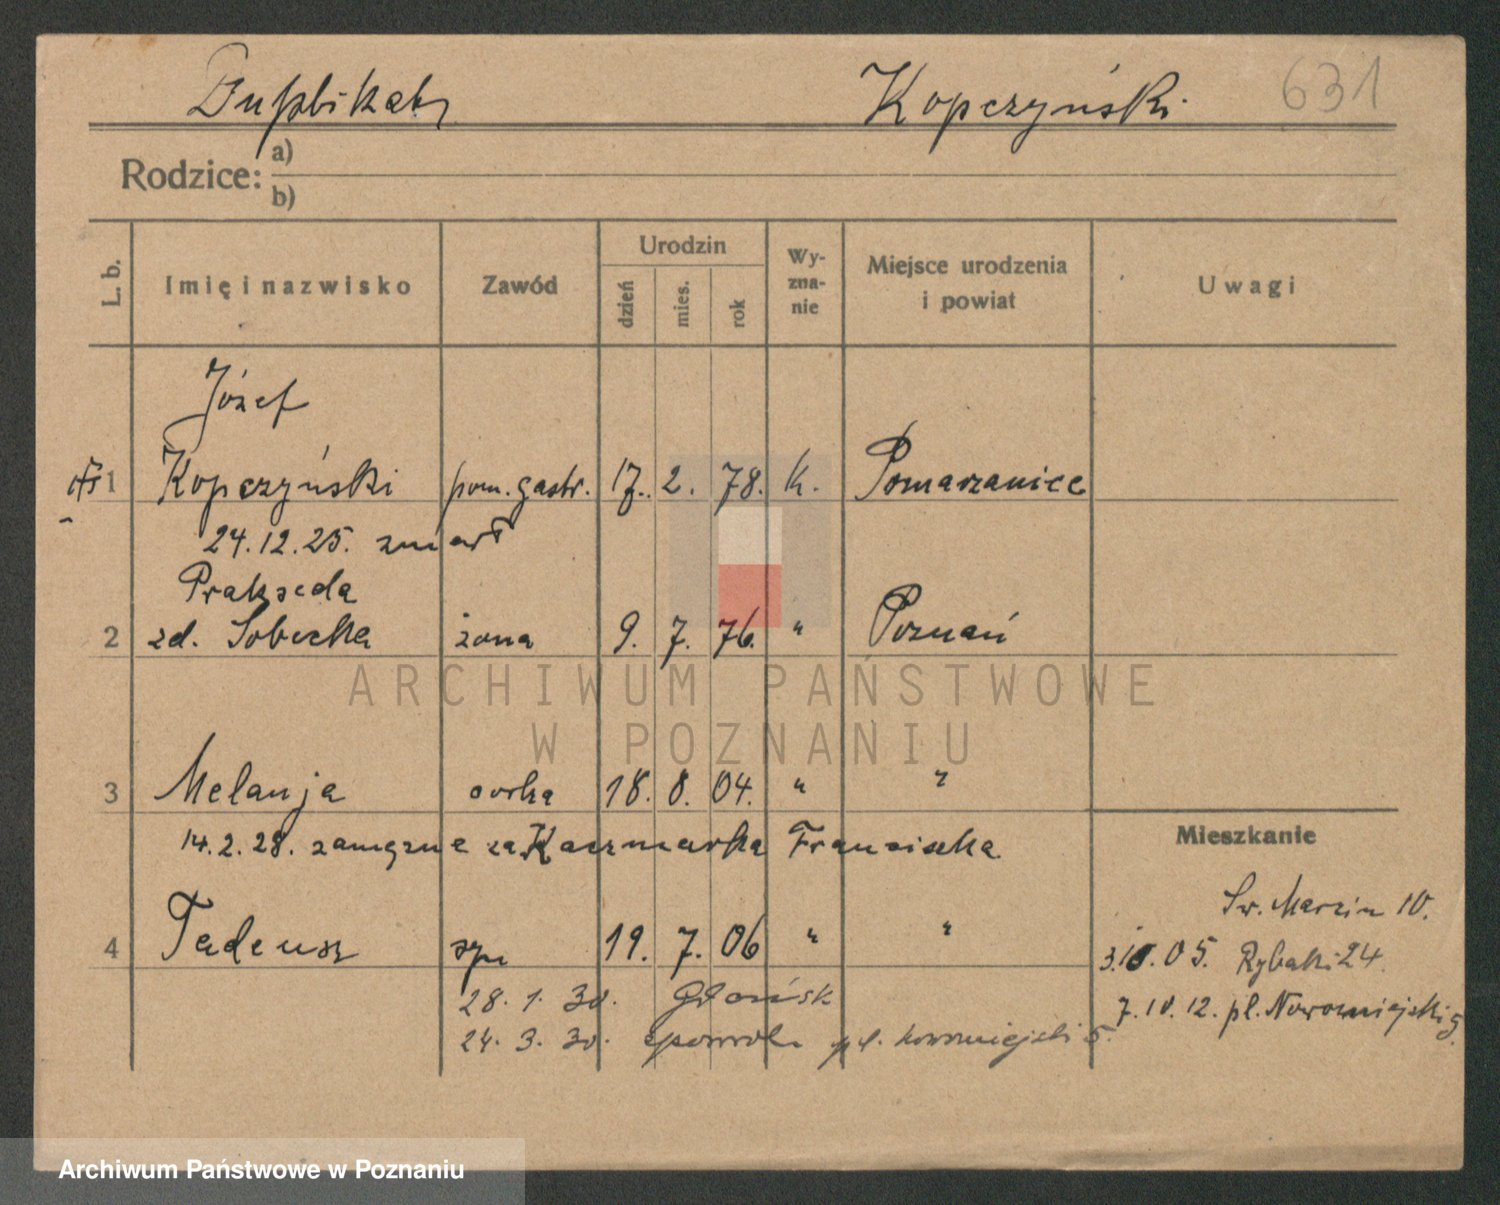 Duplikat Kopczyński 631
Rodzice: a)
b)
L. b. Imię i nazwisko Zawód Urodzin dzień mies. rok Wy-zna-nie Miejsce urodzenia i powiat Uwagi
Józef
1 Kopczyński pom. gastr. 17. 2. 78. k. Pomarzanice
24.12.25. zmarł
Prakseda
2 zd. Sobecka żona 9. 7. 76. " Poznań
ARCHIWUM PAŃSTWOWE
W POZNANIU
3 Melanja córka 18. 8. 04. " "
14.2.28. zamężna za Kaczmarka Franciszka
Mieszkanie
Św. Marcin 10.
4 Tadeusz syn 19. 7. 06 " "
3.10.05. Rybaki 24.
28. 1. 30. Gdańsk
7.10.12. pl. Nowomiejski 5.
24. 3. 30. zpowrot. pl. Nowomiejski 5.
Archiwum Państwowe w Poznaniu